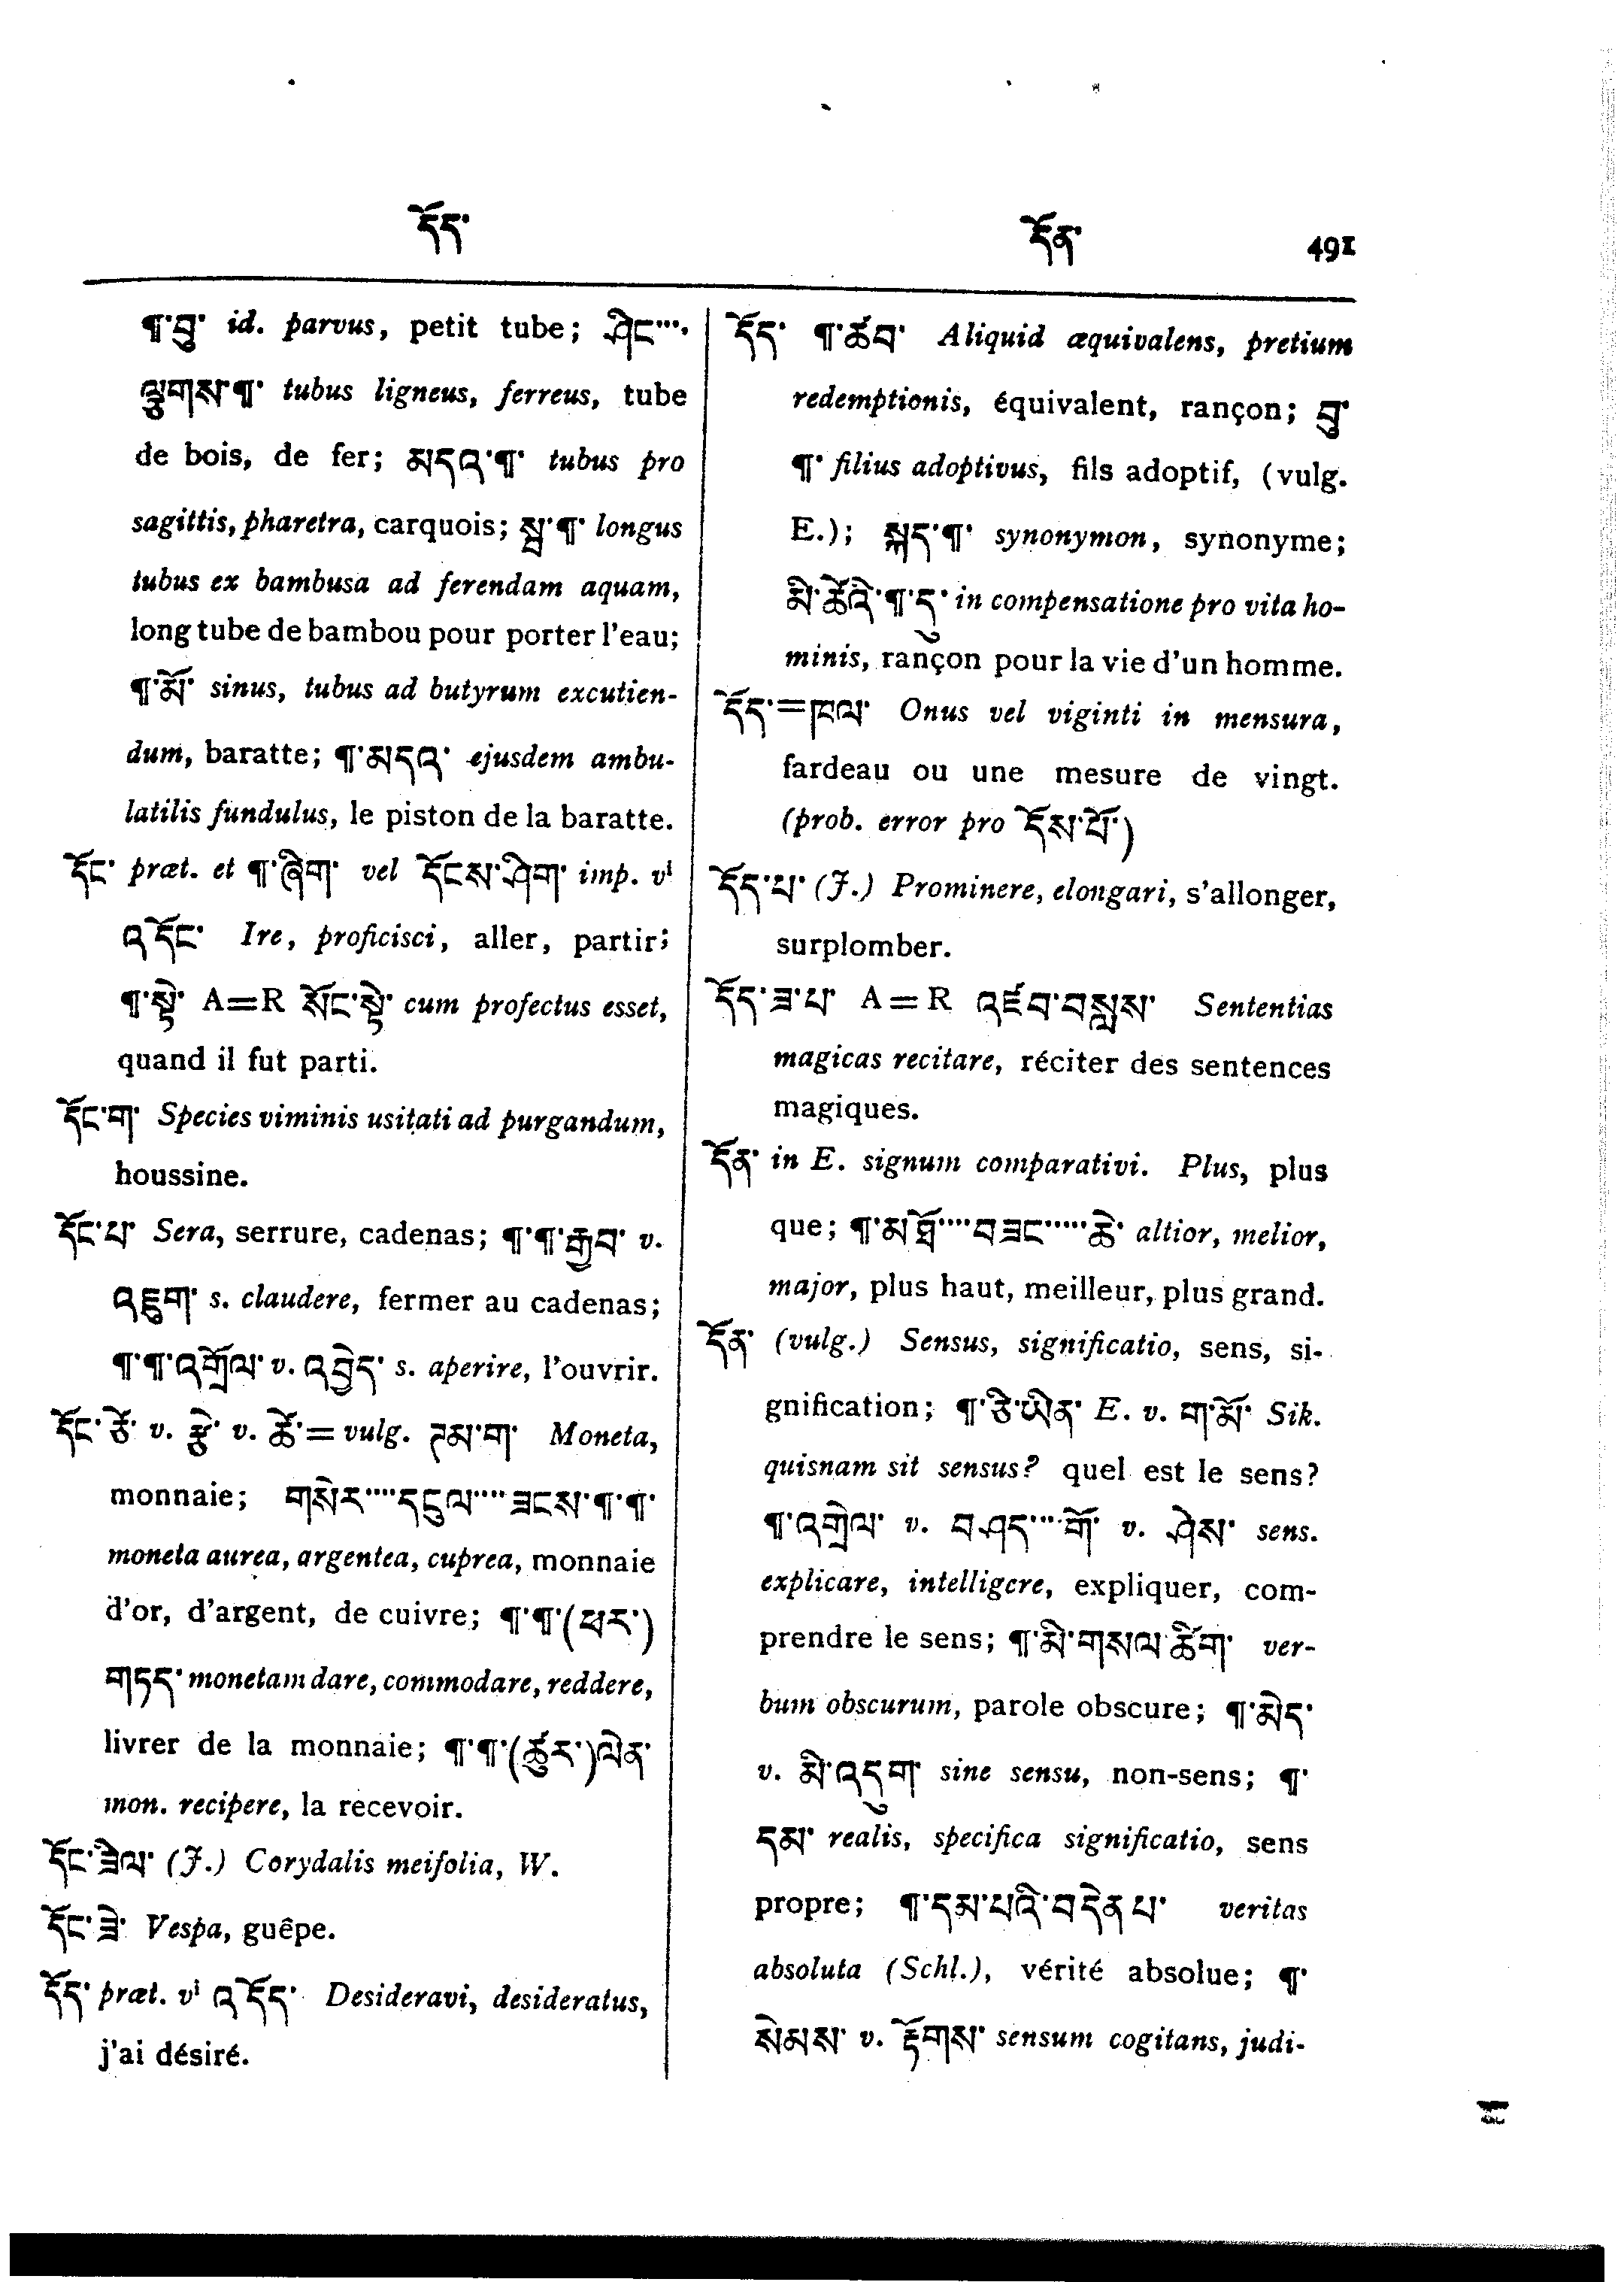 དོད་ དོན་ 491
¶་བུ་ id. parvus, petit tube; ཤིང་····
ལྕུགས་¶་ tubus ligneus, ferreus, tube
de bois, de fer; མདའ་¶་ tubus pro
sagittis, pharetra, carquois; སྦྲ་¶་ longus
tubus ex bambusa ad ferendam aquam,
long tube de bambou pour porter l'eau;
¶་མོ་ sinus, tubus ad butyrum excutien-
dum, baratte; ¶་མདའ་ ejusdem ambu-
latilis fundulus, le piston de la baratte.
དོང་ præt. et ¶་ཞིག་ vel དོངས་ཤིག་ imp. vⁱ
འདོང་ Ire, proficisci, aller, partir;
¶་སྟེ་ A=R སོང་སྟེ་ cum profectus esset,
quand il fut parti.
དོང་ག་ Species viminis usitati ad purgandum,
houssine.
དོང་པ་ Sera, serrure, cadenas; ¶་¶་རྒྱབ་ v.
འཇུག་ s. claudere, fermer au cadenas;
¶་¶་འགྲོལ་ v. འབྱེད་ s. aperire, l'ouvrir.
དོང་ཙེ་ v. རྩེ་ v. ཚེ་ = vulg. ཊམ་ག་ Moneta,
monnaie; གསེར་····དངུལ་····ཟངས་¶་¶་
moneta aurea, argentea, cuprea, monnaie
d'or, d'argent, de cuivre; ¶་¶་(ཕར་)
གཏད་ monetam dare, commodare, reddere,
livrer de la monnaie; ¶་¶་(ཚུར་)ལེན་
mon. recipere, la recevoir.
དོང་ཟིལ་ (J.) Corydalis meifolia, W.
དོང་ཟེ་ Vespa, guêpe.
དོད་ præt. vⁱ འདོད་ Desideravi, desideratus,
j'ai désiré.
དོད་ ¶་ཚབ་ Aliquid æquivalens, pretium
redemptionis, équivalent, rançon; བུ་
¶་ filius adoptivus, fils adoptif, (vulg.
E.); སྐད་¶་ synonymon, synonyme;
མི་ཚེའི་¶་དུ་ in compensatione pro vita ho-
minis, rançon pour la vie d'un homme.
དོད་=ཁལ་ Onus vel viginti in mensura,
fardeau ou une mesure de vingt.
(prob. error pro དོས་པོ་)
དོད་པ་ (J.) Prominere, elongari, s'allonger,
surplomber.
དོད་ཟ་པ་ A=R འཛབ་བསླས་ Sententias
magicas recitare, réciter des sentences
magiques.
དོན་ in E. signum comparativi. Plus, plus
que; ¶་མཐོ་····བཟང་·····ཆེ་ altior, melior,
major, plus haut, meilleur, plus grand.
དོན་ (vulg.) Sensus, significatio, sens, si-
gnification; ¶་ཅི་ཡིན་ E. v. ག་མོ་ Sik.
quisnam sit sensus? quel est le sens?
¶་འགྲེལ་ v. བཤད་····གོ་ v. ཤེས་ sens.
explicare, intelligere, expliquer, com-
prendre le sens; ¶་མི་གསལ་ཚིག་ ver-
bum obscurum, parole obscure; ¶་མེད་
v. མི་འདུག་ sine sensu, non-sens; ¶་
དམ་ realis, specifica significatio, sens
propre; ¶་དམ་པའི་བདེན་པ་ veritas
absoluta (Schl.), vérité absolue; ¶་
སེམས་ v. རྟོགས་ sensum cogitans, judi-